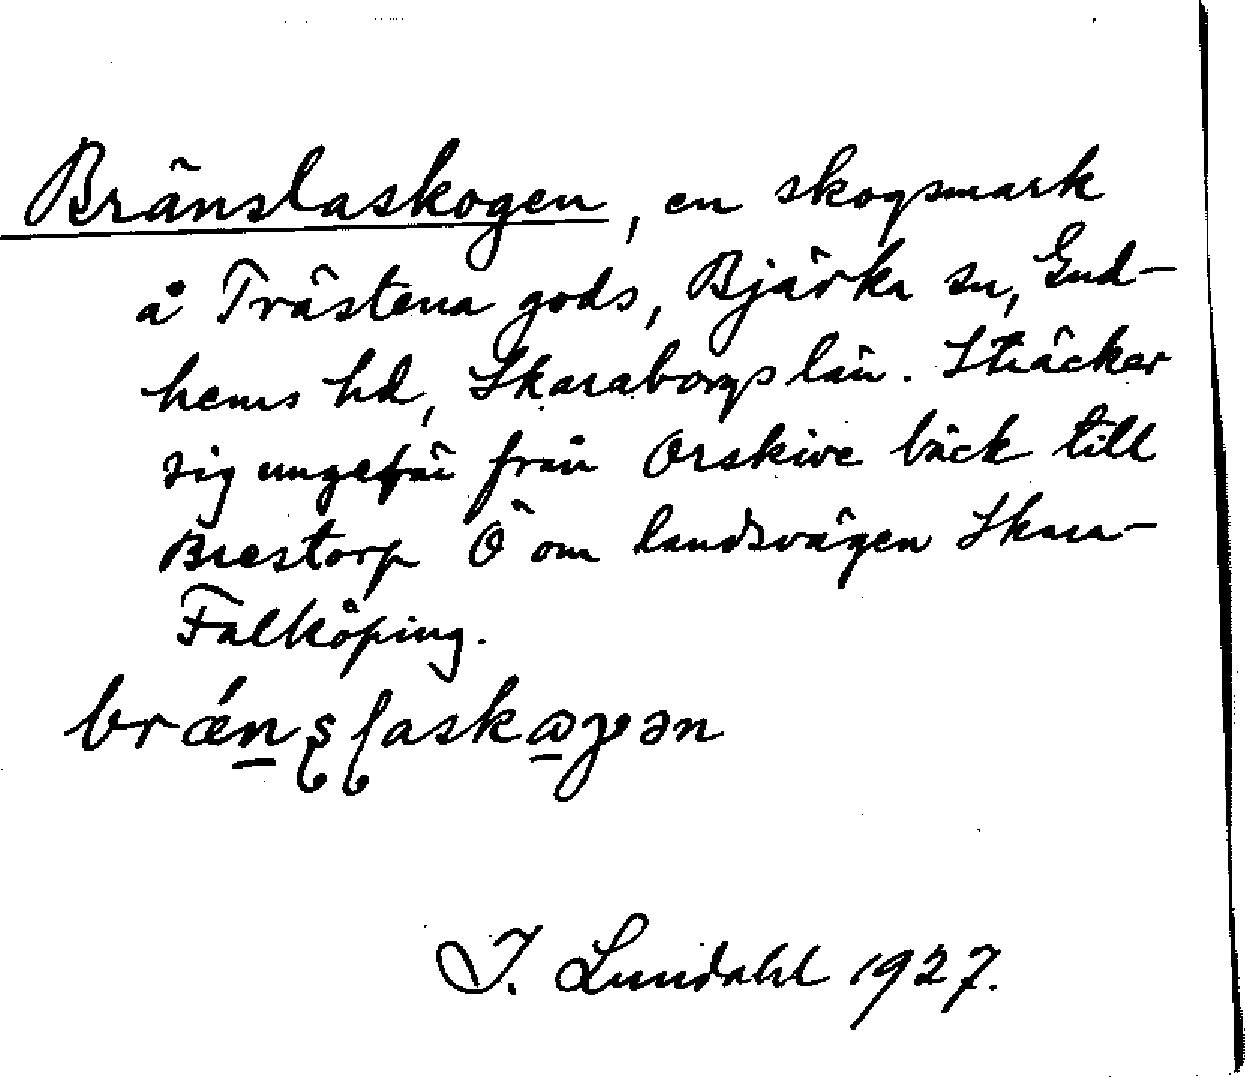 Bränslaskogen, en skogsmark
å Trästena gods, Bjärka sn, Gud-
hems hd, Skaraborgs län. Sträcker
sig ungefär från Orskive bäck till
Brestorp Ö om landsvägen Skara-
Falköping.
brǽnsʃaskaɡən
I. Lundahl 1927.